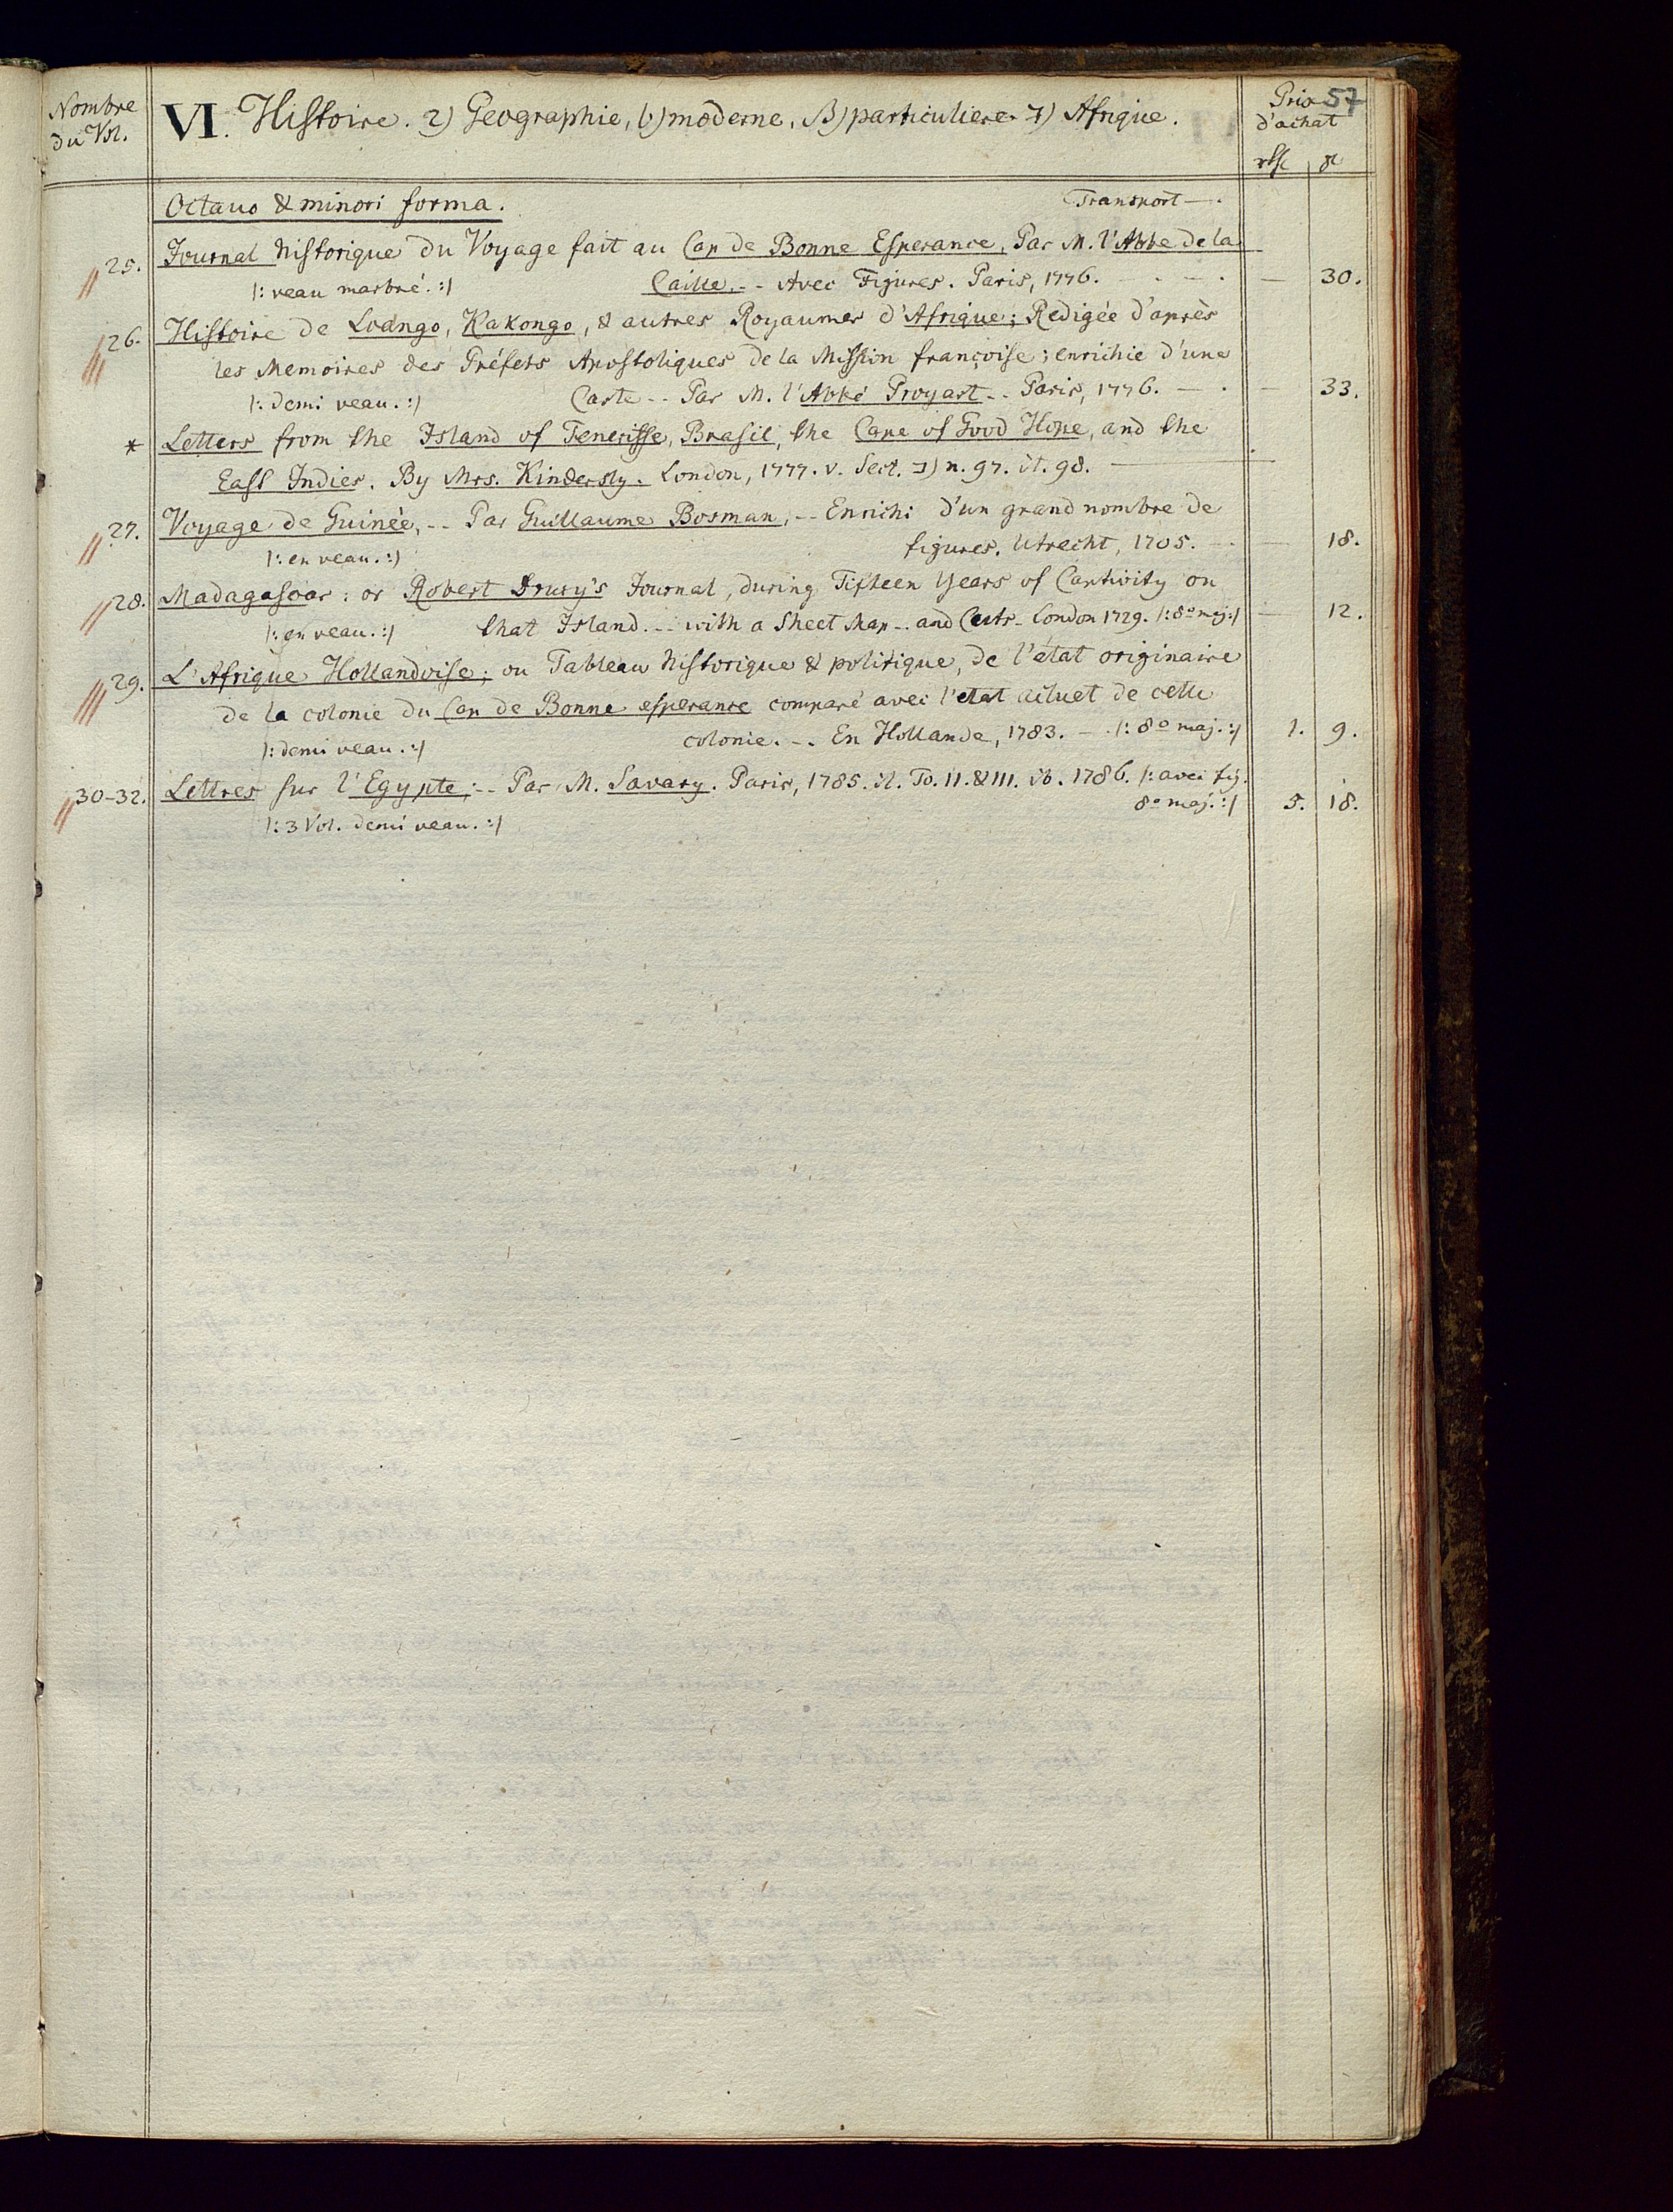 Nombre
du Vol.
VI. Histoire. 2) Geographie, b) moderne, B) particuliere. ד) Afrique.
Prix 57
d'achat
Octavo & minori forma. Transport —.
25. Journal historique du Voyage fait au Cap de Bonne Esperance, Par M. l'Abbe de la
|: veau marbré. :| Caille. -- Avec Figures. Paris, 1776. — 30.
26. Histoire de Loango, Kakongo, & autres Royaumes d'Afrique; Redigée d'après
les Memoires des Préfets Apostoliques de la Mission françoise; enrichie d'une
|: demi veau. :| Carte -- Par M. l'Abbé Proyart -- Paris, 1776. — 33.
* Letters from the Island of Teneriffe, Brasil, the Cape of Good Hope, and the
East Indies. By Mrs. Kindersly. London, 1777. v. Sect. ב) n. 97. it. 98.
27. Voyage de Guinée, -- Par Guillaume Bosman, -- Enrichi d'un grand nombre de
|: en veau. :| figures. Utrecht, 1705. — 18.
28. Madagascar: or Robert Drury's Journal, during Fifteen Years of Captivity on
|: en veau. :| that Island. -- with a Sheet Map -- and Cuts - London 1729. |: 8º maj :| — 12.
29. L'Afrique Hollandoise; ou Tableau historique & politique, de l'état originaire
de la colonie du Cap de Bonne esperance comparé avec l'etat actuel de cette
|: demi veau. :| colonie. -- En Hollande, 1783. — |: 8º maj. :| 1. 9.
30-32. Lettres sur l'Egypte; -- Par M. Savary. Paris, 1785. it. To. II. & III. ib. 1786. |: avec fig.
8º maj. :| 5. 18.
|: 3 Vol. demi veau. :|